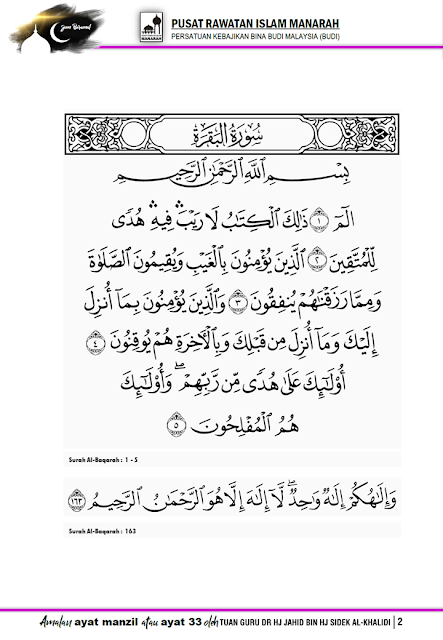 PUSAT RAWATAN ISLAM MANARAH
PERSATUAN KEBAJIKAN BINA BUDI MALAYSIA (BUDI)
MANARAH
سُورَةُ البَقَرَةِ
بِسْمِ اللَّهِ الرَّحْمَٰنِ الرَّحِيمِ
الٓمٓ ١ ذَٰلِكَ ٱلْكِتَٰبُ لَا رَيْبَ ۛ فِيهِ ۛ هُدًى
لِّلْمُتَّقِينَ ٢ ٱلَّذِينَ يُؤْمِنُونَ بِٱلْغَيْبِ وَيُقِيمُونَ ٱلصَّلَوٰةَ
وَمِمَّا رَزَقْنَٰهُمْ يُنفِقُونَ ٣ وَٱلَّذِينَ يُؤْمِنُونَ بِمَآ أُنزِلَ
إِلَيْكَ وَمَآ أُنزِلَ مِن قَبْلِكَ وَبِٱلْءَاخِرَةِ هُمْ يُوقِنُونَ ٤
أُو۟لَٰٓئِكَ عَلَىٰ هُدًى مِّن رَّبِّهِمْ ۖ وَأُو۟لَٰٓئِكَ
هُمُ ٱلْمُفْلِحُونَ ٥
Surah Al-Baqarah : 1 - 5
وَإِلَٰهُكُمْ إِلَٰهٌ وَٰحِدٌ ۖ لَّآ إِلَٰهَ إِلَّا هُوَ ٱلرَّحْمَٰنُ ٱلرَّحِيمُ ١٦٣
Surah Al-Baqarah : 163
Amalan ayat manzil atau ayat 33 oleh TUAN GURU DR HJ JAHID BIN HJ SIDEK AL-KHALIDI | 2